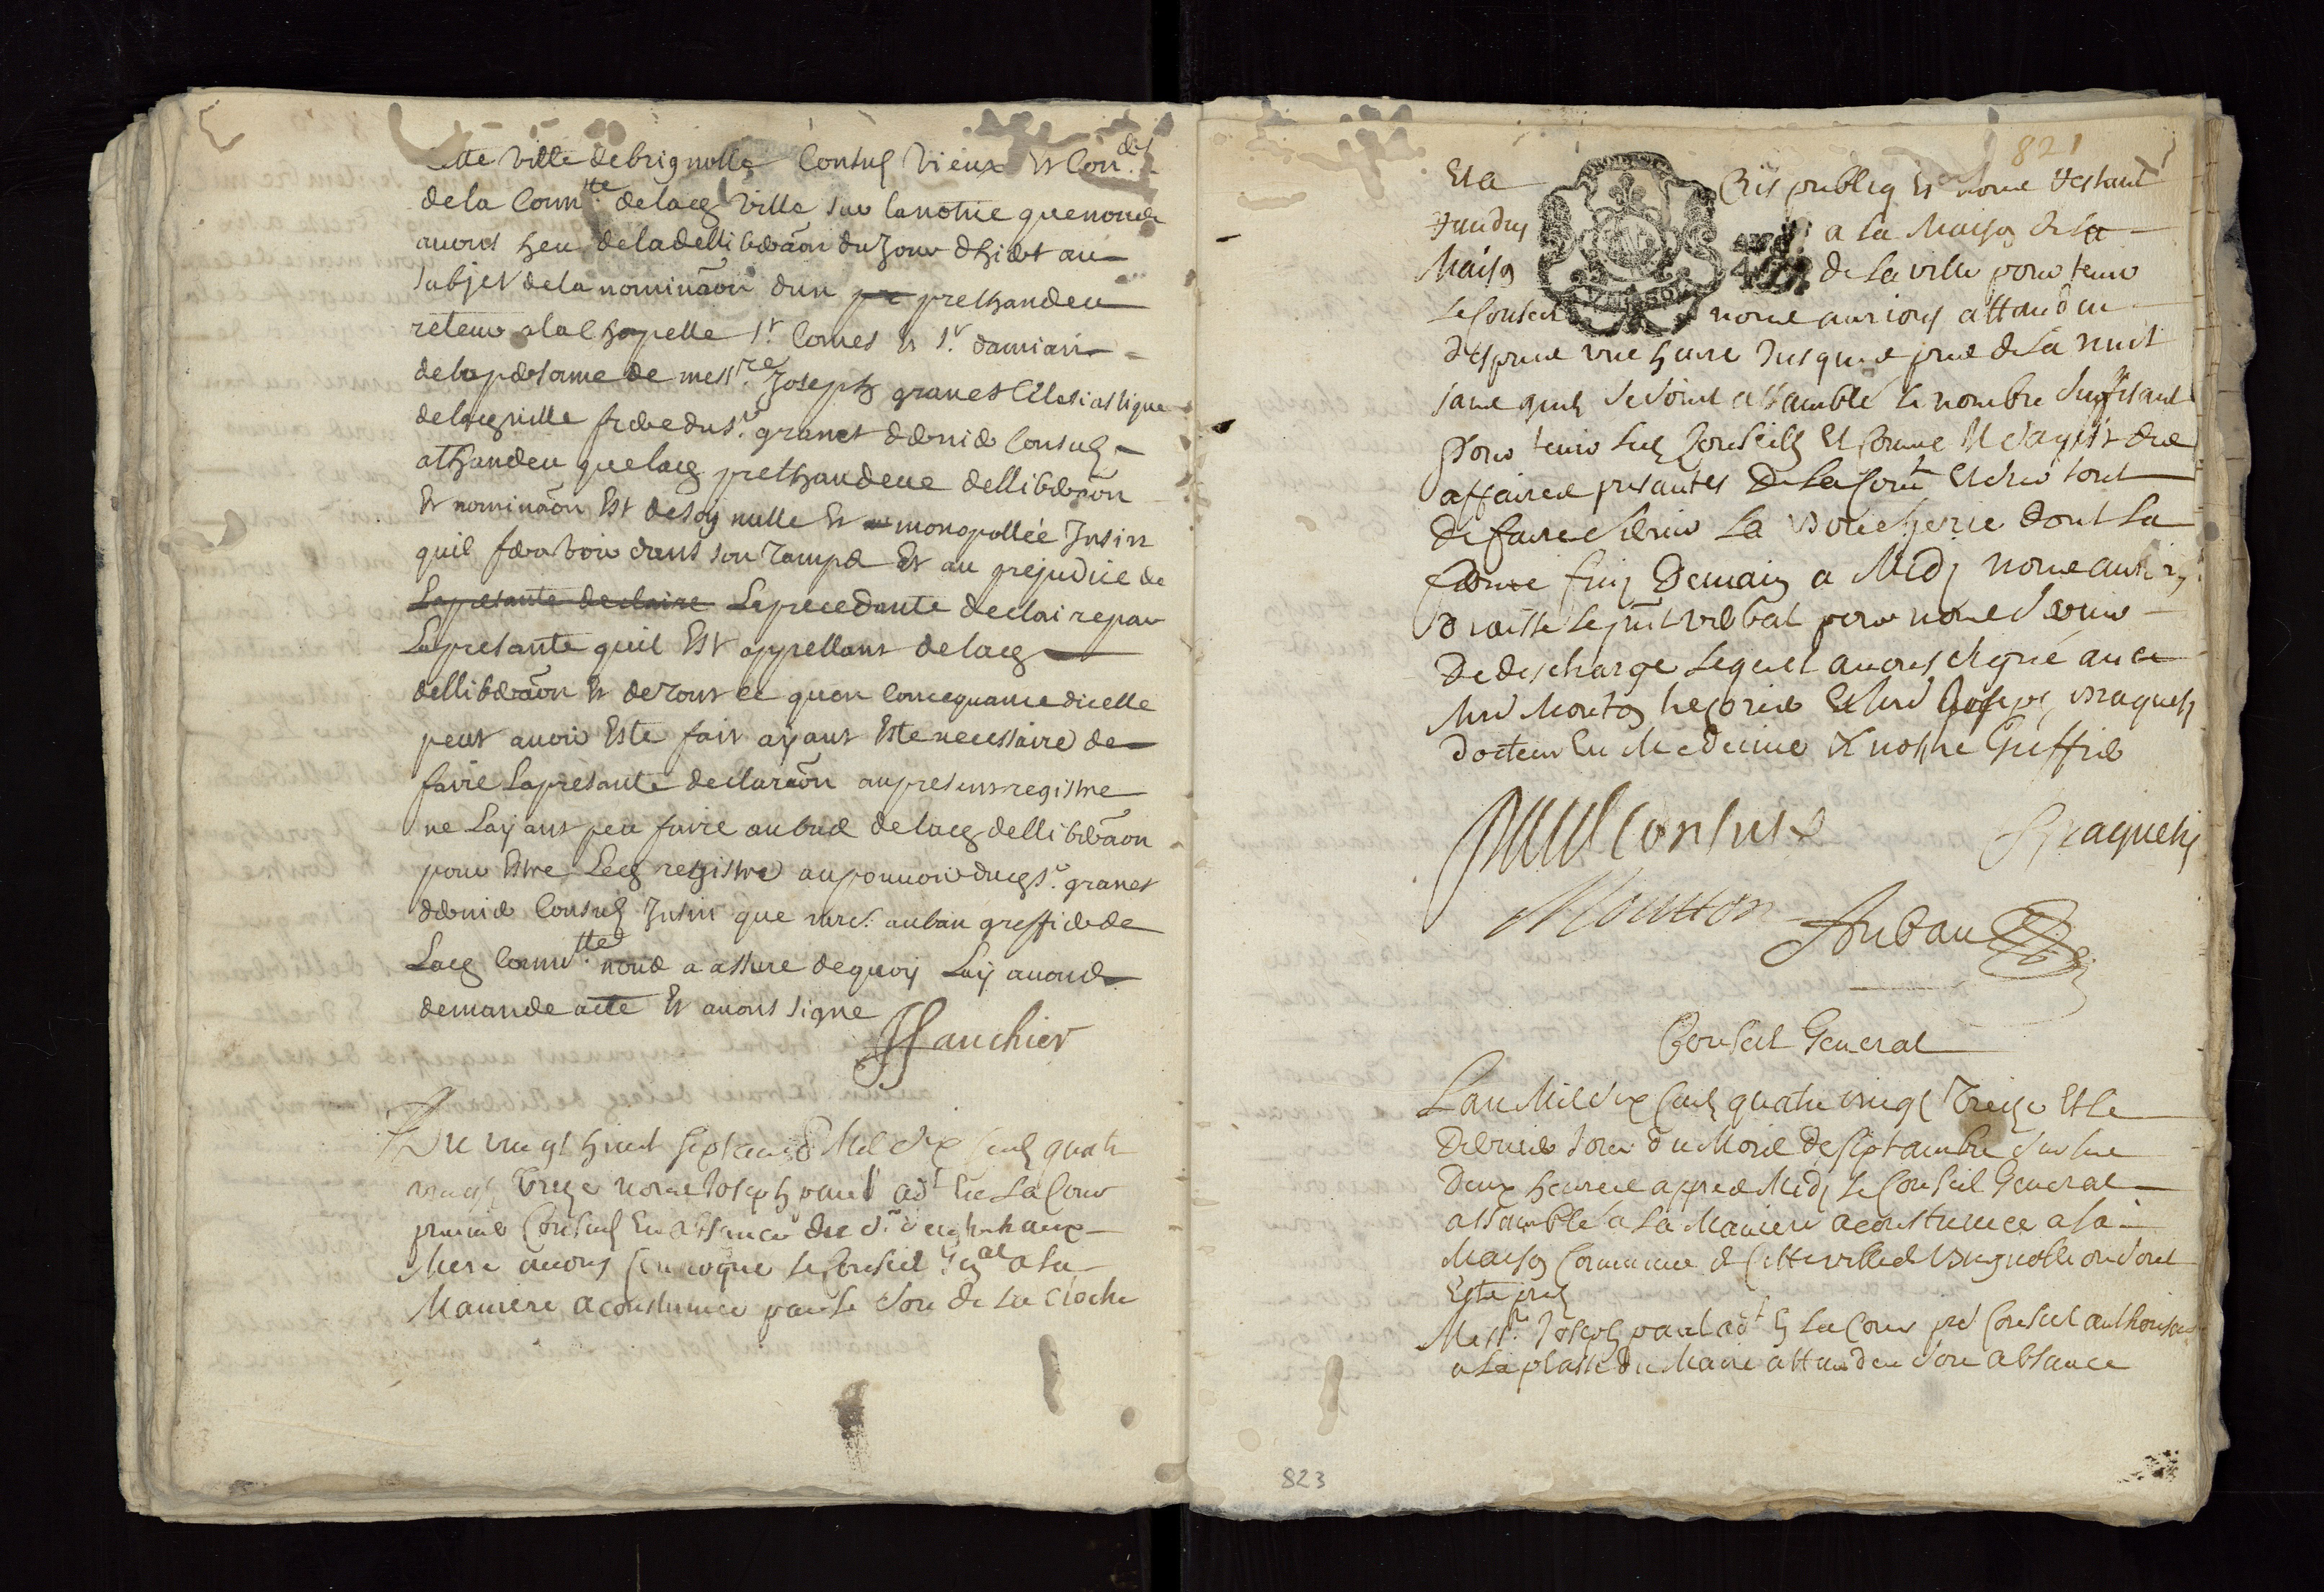 Cette ville de brignolle Consul vieux et Con.der
de la Comm.tte de lacq ville sur la notice que nous
avons heu de la delliberãon du Jour dhier au
subjet de la nominãon dun pre prethandeu
reteur a la Chapelle s.t Comes et s.t damian
de la persame de mess.re Joseph granet Eclesiastique
de lacq ville frere du s.r granet dernier Consul
athandeu que lacq prethandeue delliberãon
et nominãon est de soy nulle et monopollée Insin
quil fera voir dans son Tamps et au prejudice de
La presante declaire La precedante declaire par
La presante quil est appellant de lacq
delliberãon et de Tout ce quen Concequance dicelle
peut avoir este fait ayant este necessaire de
faire La presante declarãon au presens registre
ne Layant peu faire au bas de lacq delliberãon
pour estre Lecq registre au pouvoir ducq s.r granet
dernier Consul Insin que me auban greffier de
Lacq Comm.tte nous a assure de quoy Luy avons
demande acte et avons signe
Fauchier
Du vingt huict septambre Mil six cens quatre
vingt Treize nous Joseph paul ad.t En La Cour
premier Consul En absance du s.r
Mere avons Convoque Le Conseil g.nal a la
Maniere acoustumee par Le son de La Cloche
821
Et a Cris public et nous estant
randus a La Maison de La
Maison de La ville pour tenir
Le Conseil nous aurions attandeu
despuis une heure Jusques pres de La nuit
sans quil se soint assamblé Le nombre suffisant
Pour tenir Led Conseilh Et Comme Il sagist des
affaires presantes de La Com.té et sur tout
de faire servir La Boucherie dont La
ferme finy Demain a Midy nous
draisse Le pñt verbal pour nous servir
De descharge Lequel avons signé avec
Me Mouton et Me Joseph Braquety
docteur En Medecine et nostre Greffier
Paul Consul
Braquety
Moutton
Auban
Conseil General
L'an Mil six Cens quatre vingt Treize et le
Dernier Jour du Mois de septambre sur les
Deux heures appres Midy Le Conseil General
assamblé a La Maniere acoustumee a la
Maison Commune de Cette ville de Brignolle ou sont
Este pres
Mess.re Joseph paul ad.t En La Cour pr Consul authorisant
a La plasse du Maire attandeu son absance
823